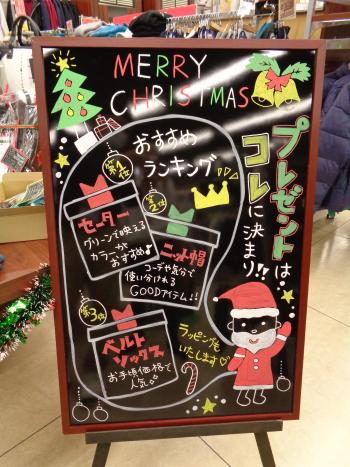 MERRY
CHRISTMAS
プレゼントは
コレに決まり!!
おすすめ
ランキング
第1位
セーター
グリーンで映える
カラーが
おすすめ♪
第2位
ニット帽
コーデや気分で
使い分けれる
GOODアイテム!!
第3位
ベルト
ソックス
お手頃価格で
人気♪
ラッピングも
いたします♡